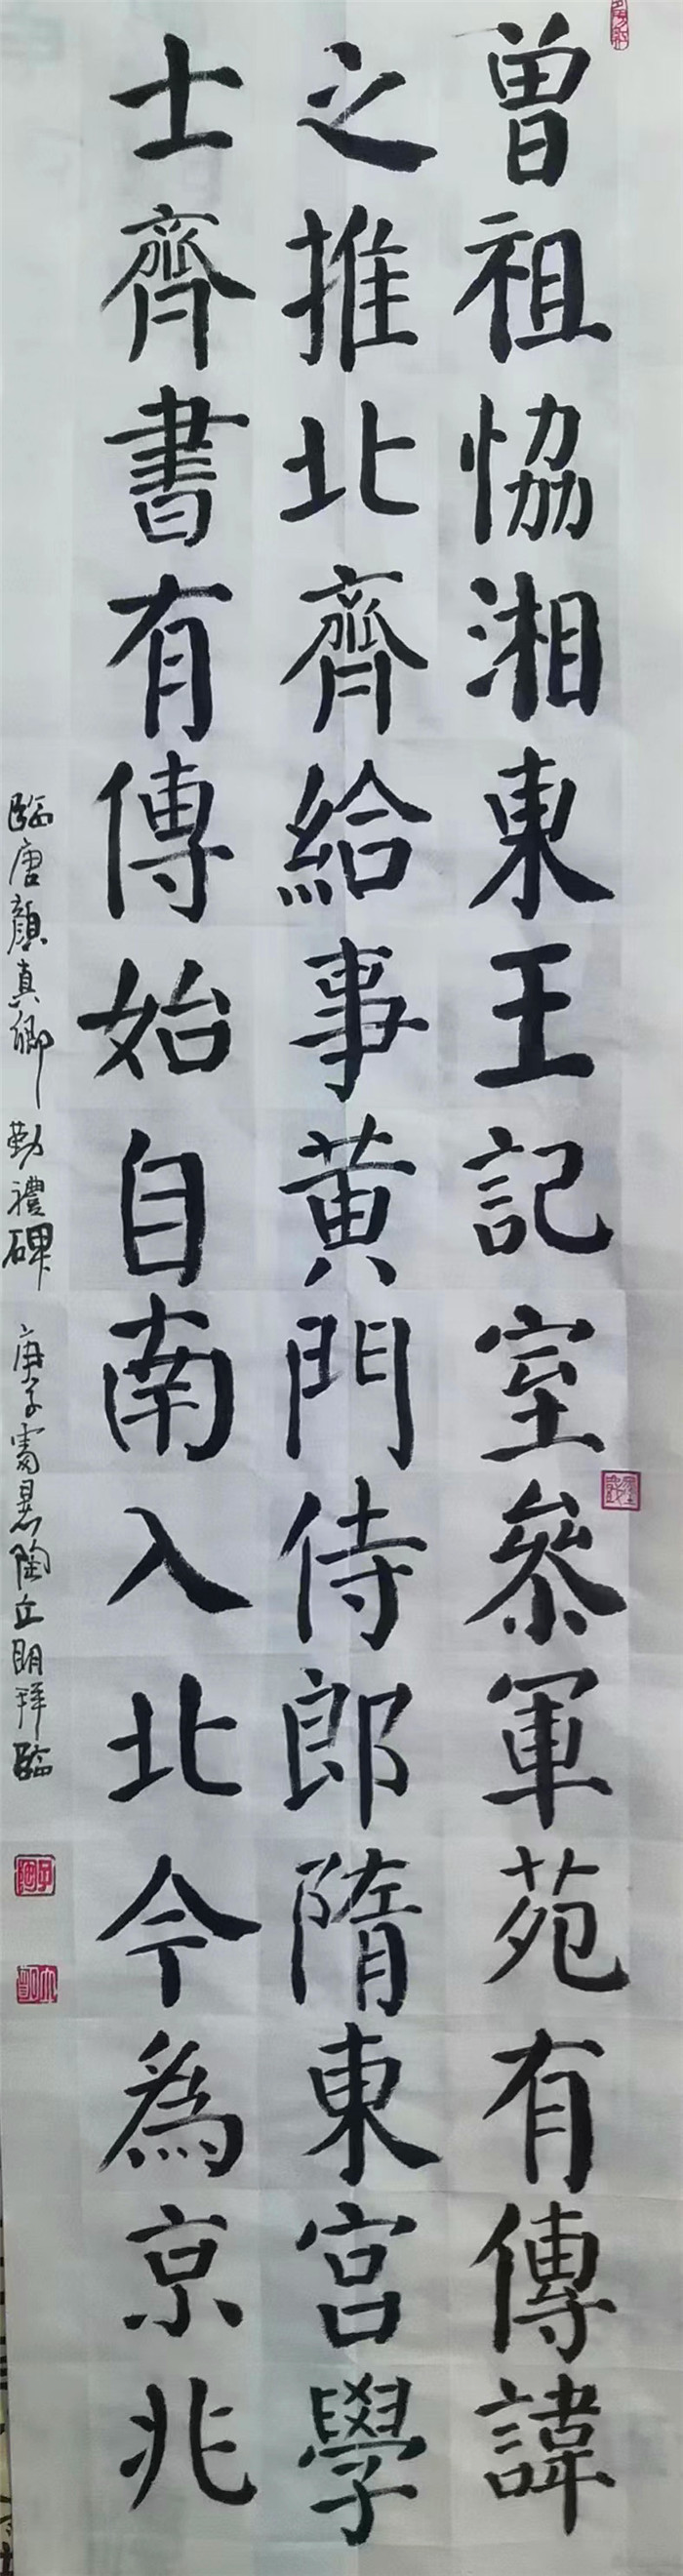 曾祖恊湘東王記室叅軍苑有傳諱
之推北齊給事黃門侍郎隋東宮學
士齊書有傳始自南入北今為京兆
臨唐顏真卿勤禮碑 庚子寒暑陶立明拜臨